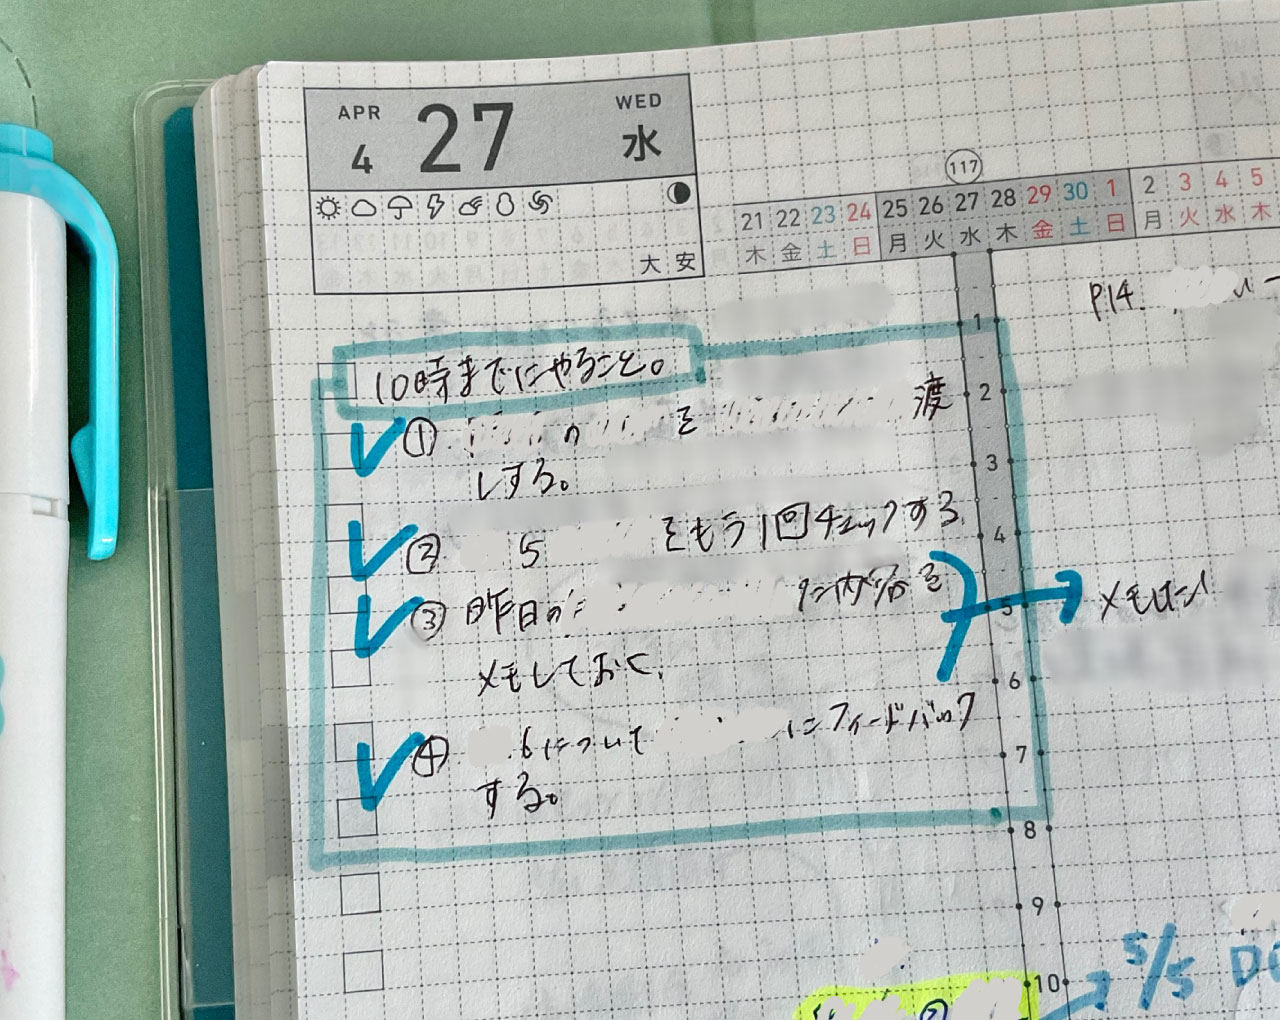 APR
WED
4
27
水
大安
117
21 22 23 24 25 26 27 28 29 30 1 2 3 4 5
木 金 土 日 月 火 水 木 金 土 日 月 火 水 木
P.14.
10時までにやること。
① の を 渡
しする。
② 5 をもう1回チェックする
③ 昨日の に内容を
メモしておく。
④ .6について にフィードバック
する。
メモは
1
2
3
4
5
6
7
8
9
10
5/5